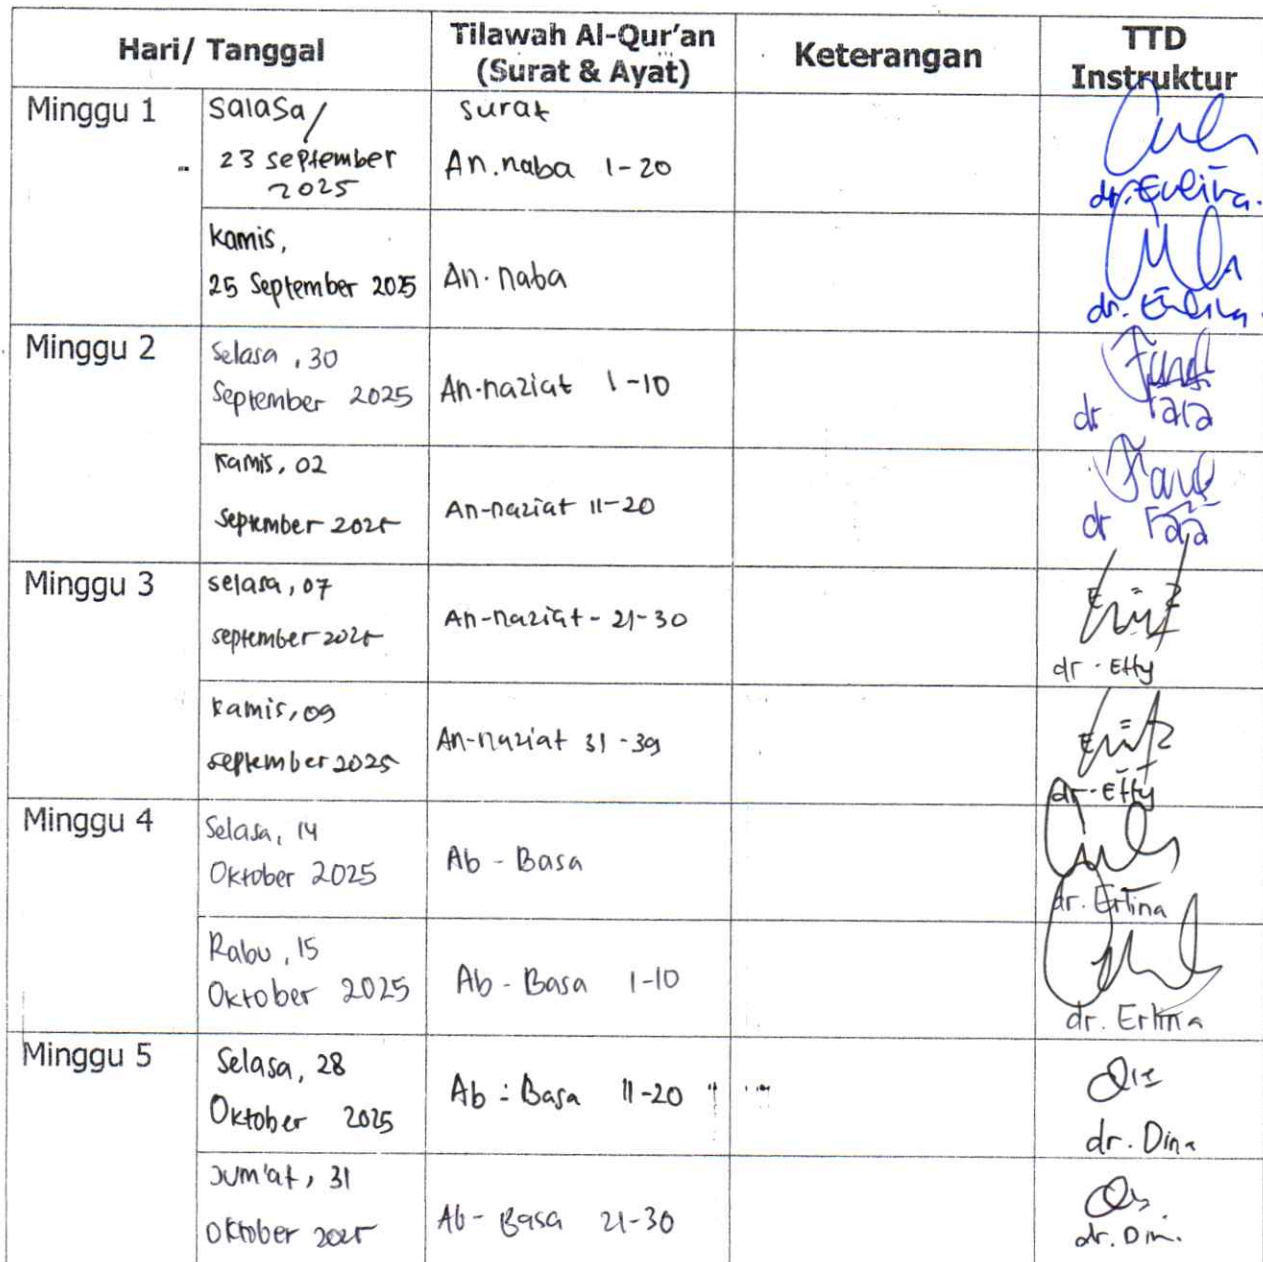 Hari/ Tanggal
Tilawah Al-Qur'an
(Surat & Ayat)
Keterangan
TTD
Instruktur
Minggu 1
Salasa/
23 September
2025
Surat
An.naba 1-20
dr. Erlina.
Kamis,
25 September 2025
An.naba
dr. Erlina.
Minggu 2
Selasa, 30
September 2025
An-naziat 1-10
dr Fara
Kamis, 02
September 2025
An-naziat 11-20
dr Fara
Minggu 3
selasa, 07
september 2025
An-naziat - 21-30
dr. Etty
kamis, 09
september 2025
An-naziat 31-39
dr. Etty
Minggu 4
Selasa, 14
Oktober 2025
Ab - Basa
dr. Erlina
Rabu, 15
Oktober 2025
Ab - Basa 1-10
dr. Erlina
Minggu 5
Selasa, 28
Oktober 2025
Ab - Basa 11-20
dr. Dina
Jum'at, 31
Oktober 2025
Ab - Basa 21-30
dr. Din.